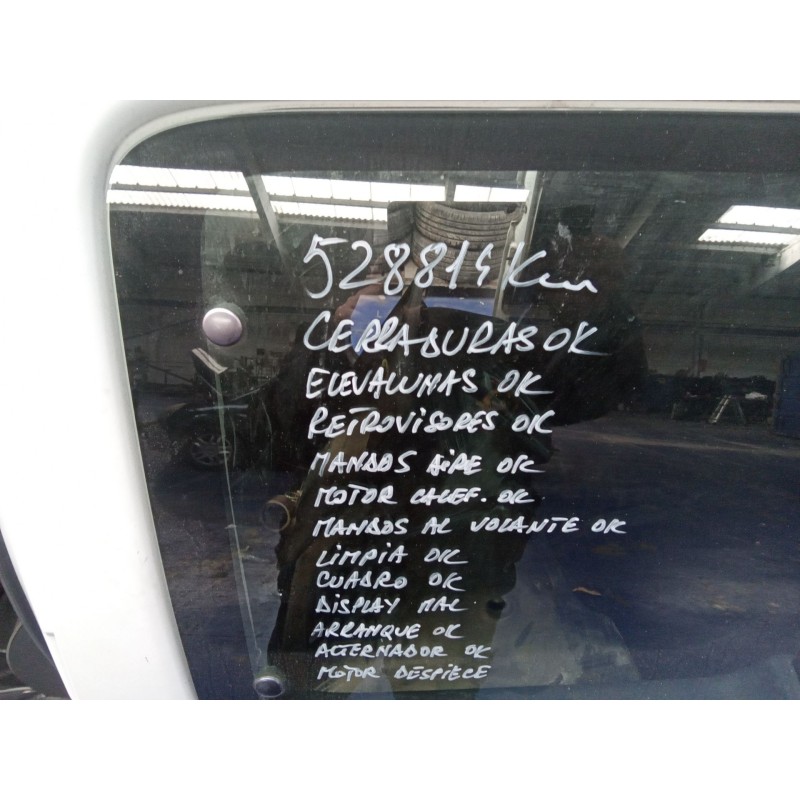 528814 Km
CERRADURAS OK
ELEVALUNAS OK
RETROVISORES OK
MANDOS AIRE OK
MOTOR CALEF. OK
MANDOS AL VOLANTE OK
LIMPIA OK
CUADRO OK
DISPLAY MAL
ARRANQUE OK
ALTERNADOR OK
MOTOR DESPIECE